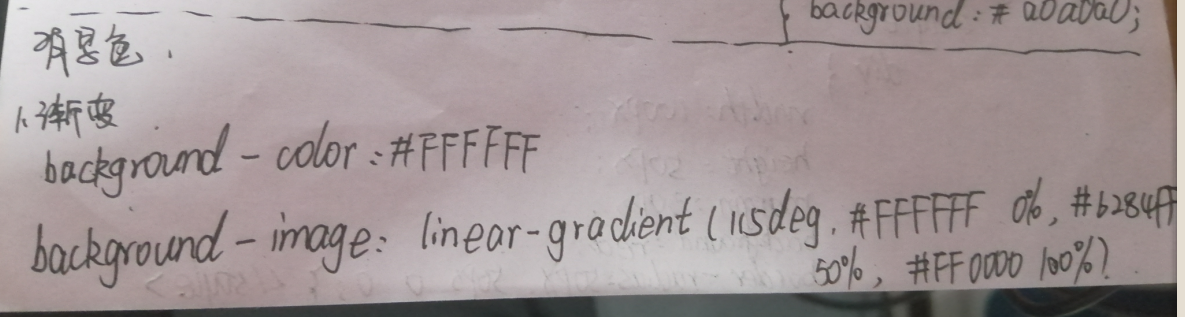 background: #a0a0a0;
背景色.
1.渐变
background-color:#FFFFFF
background-image: linear-gradient (115deg, #FFFFFF 0%, #6284FF
50%, #FF0000 100%)